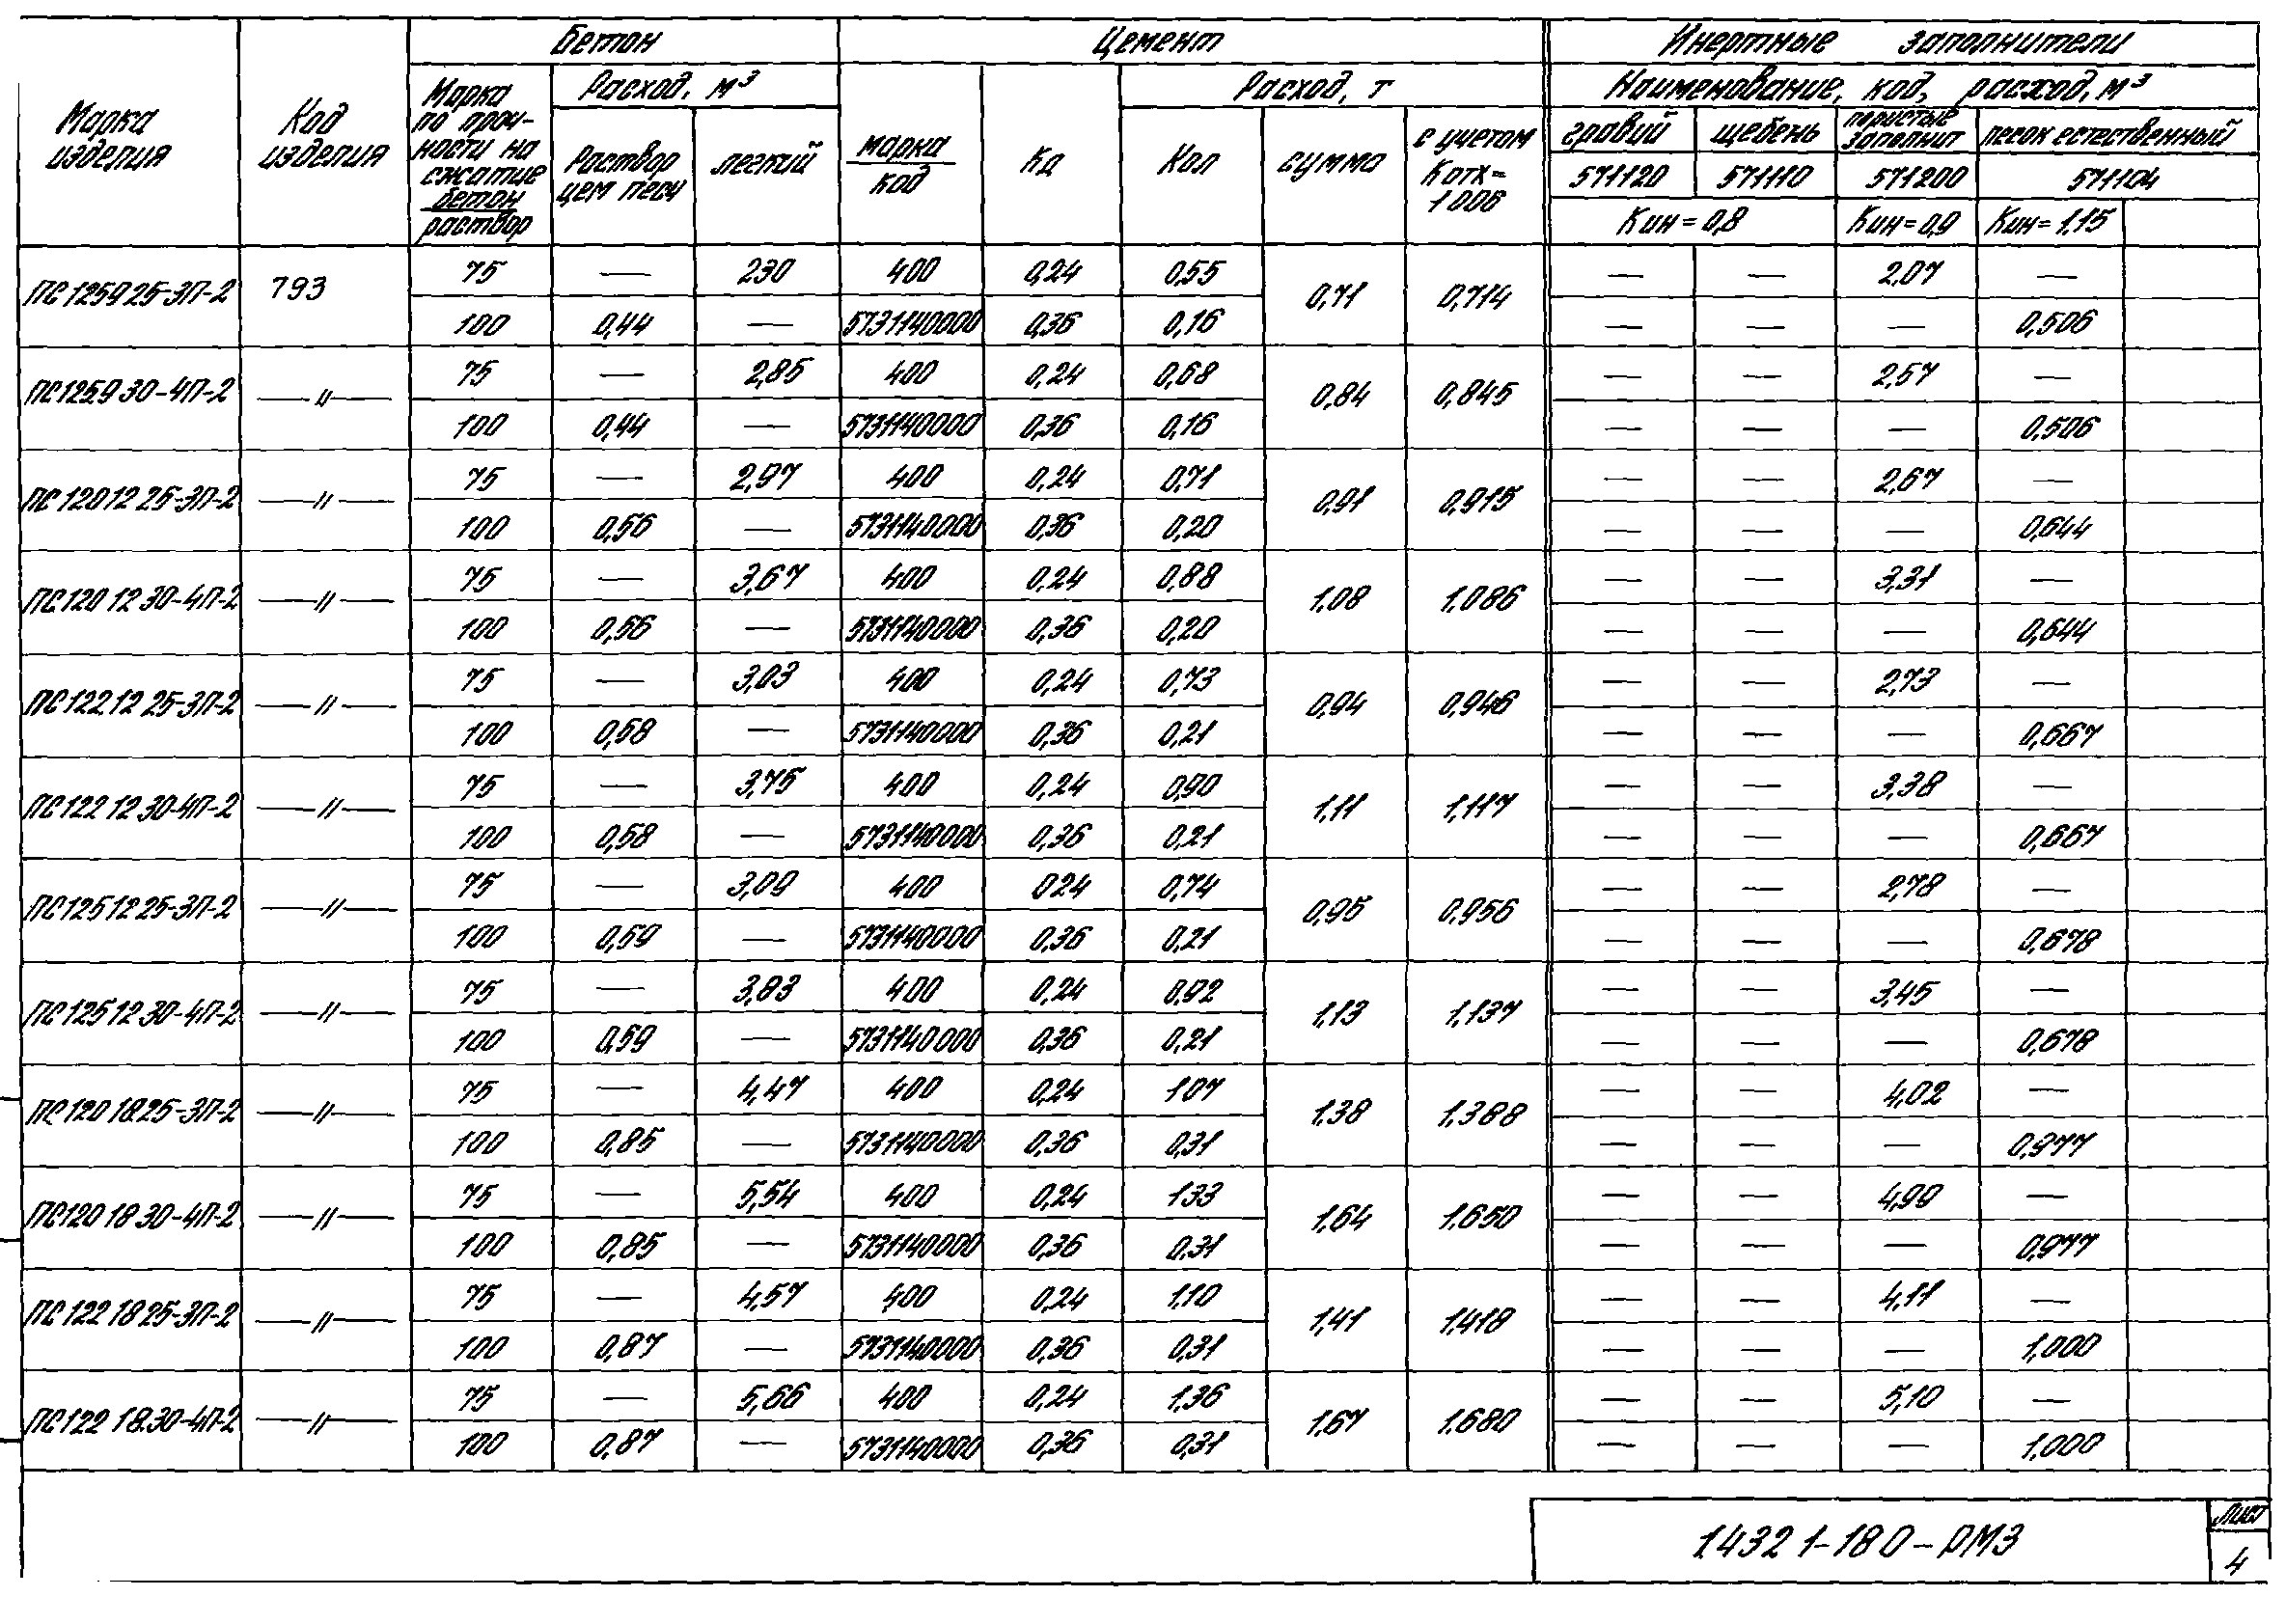 Бетон Цемент Инертные заполнители
Марка изделия Код изделия Марка по прочности на сжатие бетон раствор Расход, м³ Раствор цем песч легкий марка код Кд Кол Расход, т сумма с учетом Котх= 1006 Наименование, код, расход, м³
гравий щебень пористые заполнит песок естественный
571120 571110 571200 571104
Кин = 0,8 Кин = 0,9 Кин = 1,15
ПС 125 9 25-3П-2 793 75 — 230 400 0,24 0,55 0,71 0,714 — — 2,07 —
100 0,44 — 5731140000 0,36 0,16 — — — 0,506
ПС 125.9 30-4П-2 —〃— 75 — 2,85 400 0,24 0,68 0,84 0,845 — — 2,57 —
100 0,44 — 5731140000 0,36 0,16 — — — 0,506
ПС 120 12 25-3П-2 —〃— 75 — 2,97 400 0,24 0,71 0,91 0,915 — — 2,67 —
100 0,56 — 5731140000 0,36 0,20 — — — 0,644
ПС 120 12 30-4П-2 —〃— 75 — 3,67 400 0,24 0,88 1,08 1,086 — — 3,31 —
100 0,56 — 5731140000 0,36 0,20 — — — 0,644
ПС 122.12 25-3П-2 —〃— 75 — 3,03 400 0,24 0,73 0,94 0,946 — — 2,73 —
100 0,58 — 5731140000 0,36 0,21 — — — 0,667
ПС 122 12 30-4П-2 —〃— 75 — 3,75 400 0,24 0,90 1,11 1,117 — — 3,38 —
100 0,58 — 5731140000 0,36 0,21 — — — 0,667
ПС 125 12 25-3П-2 —〃— 75 — 3,09 400 024 0,74 0,95 0,956 — — 2,78 —
100 0,59 — 5731140000 0,36 0,21 — — — 0,678
ПС 125 12 30-4П-2 —〃— 75 — 3,83 400 0,24 0,92 1,13 1,137 — — 3,45 —
100 0,59 — 5731140000 0,36 0,21 — — — 0,678
ПС 120 18 25-3П-2 —〃— 75 — 4,47 400 0,24 107 1,38 1,388 — — 4,02 —
100 0,85 — 5731140000 0,36 0,31 — — — 0,977
ПС 120 18 30-4П-2 —〃— 75 — 5,54 400 0,24 133 1,64 1,650 — — 4,99 —
100 0,85 — 5731140000 0,36 0,31 — — — 0,977
ПС 122 18 25-3П-2 —〃— 75 — 4,57 400 0,24 1,10 1,41 1,418 — — 4,11 —
100 0,87 — 5731140000 0,36 0,31 — — — 1,000
ПС 122 18.30-4П-2 —〃— 75 — 5,66 400 0,24 1,36 1,67 1,680 — — 5,10 —
100 0,87 — 5731140000 0,36 0,31 — — — 1,000
1.432 1-18 0-РМ3
Лист
4